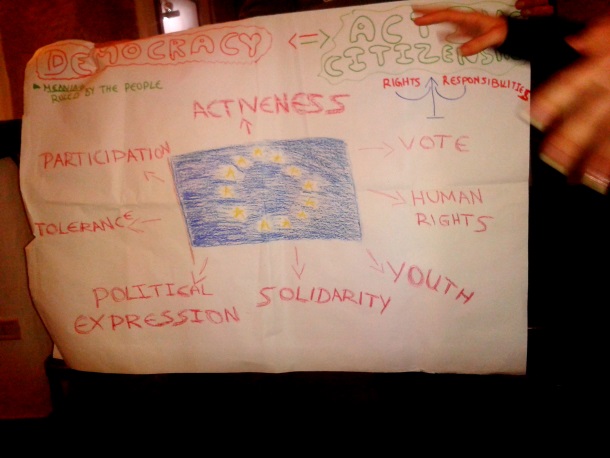 DEMOCRACY <=> ACT
CITIZENSH
RULED BY THE PEOPLE
RIGHTS RESPONSIBILITIES
ACTIVENESS
PARTICIPATION
VOTE
TOLERANCE
HUMAN
RIGHTS
POLITICAL
EXPRESSION
SOLIDARITY
YOUTH